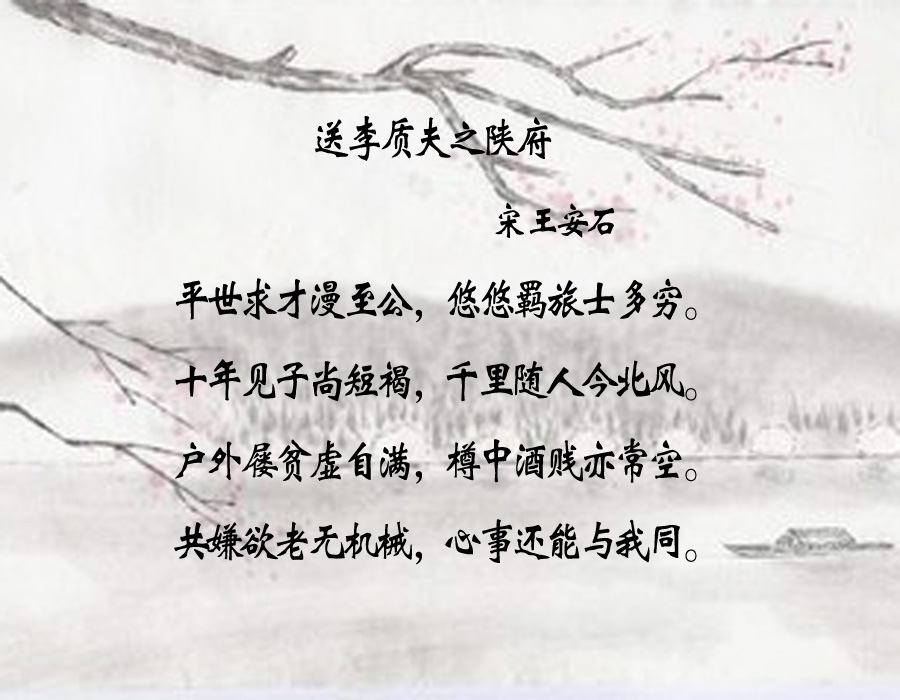 送李质夫之陕府
宋 王安石
平世求才漫至公，悠悠羁旅士多穷。
十年见子尚短褐，千里随人今北风。
户外屦贫虚自满，樽中酒贱亦常空。
共嫌欲老无机械，心事还能与我同。